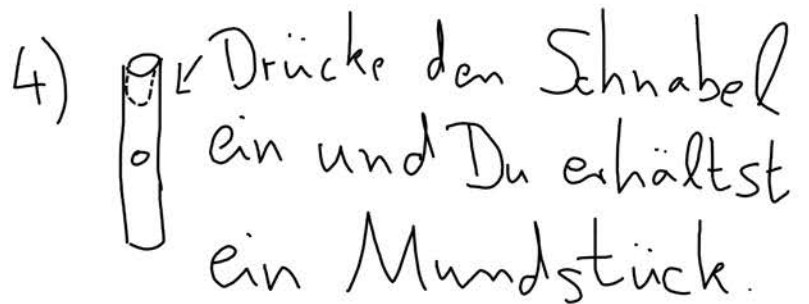 4) Drücke den Schnabel
ein und Du erhältst
ein Mundstück.